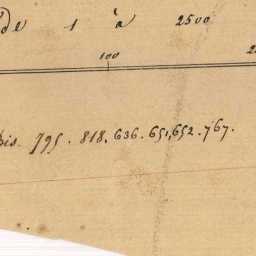 de 1 à 2500
100
bis 795. 818. 636. 651, 652. 767.